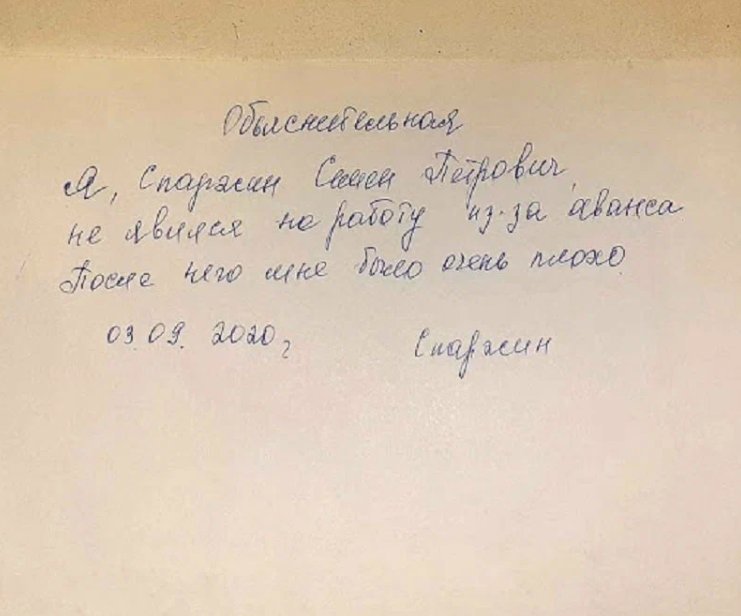 Объяснительная
Я, Спаржин Семен Петрович,
не явился на работу из-за аванса
После него мне было очень плохо.
03.09. 2020г
Спаржин